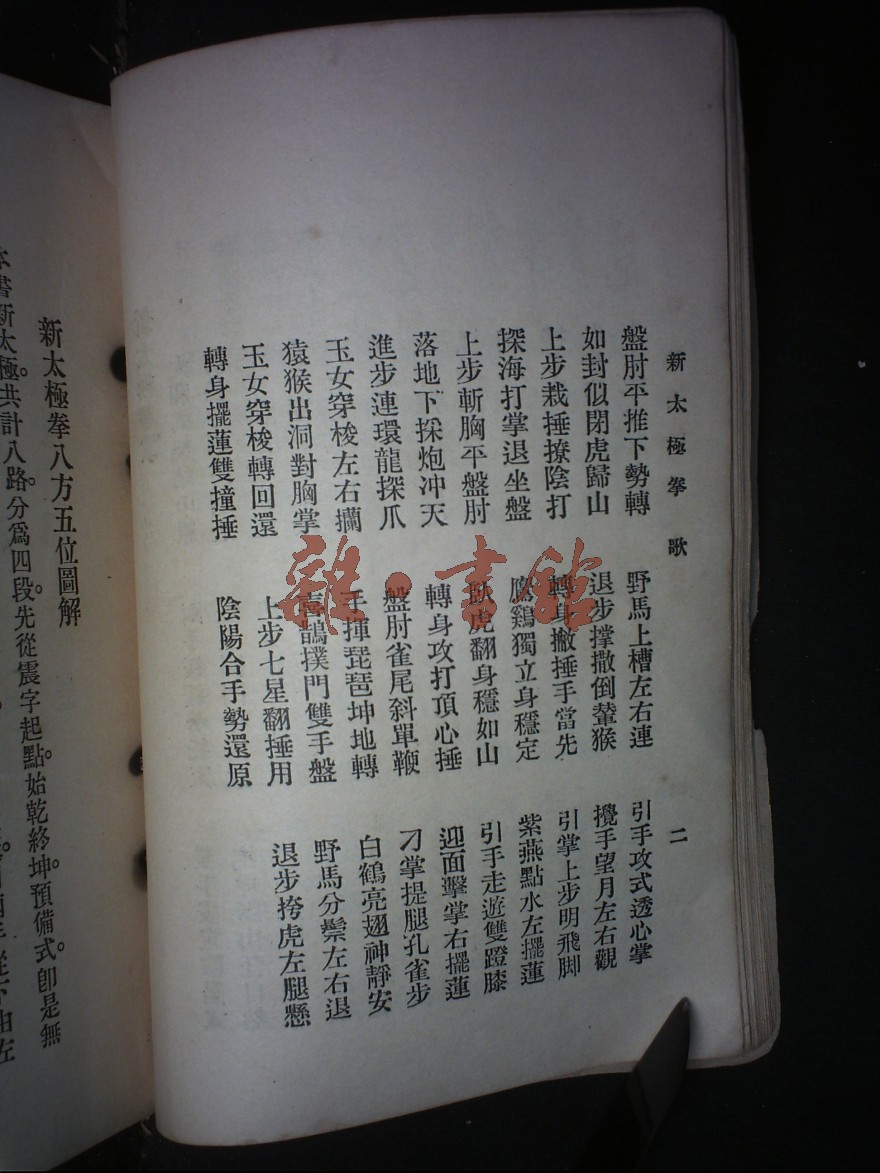 新太極拳歌 二
盤肘平推下勢轉 野馬上槽左右連 引手攻式透心掌
如封似閉虎歸山 退步撑撒倒輦猴 攪手望月左右觀
上步栽捶撩陰打 轉身撇捶手當先 引掌上步明飛脚
探海打掌退坐盤 鷄獨立身穩定 紫燕點水左擺蓮
上步斬胸平盤肘 臥虎翻身穩如山 引手走遊雙蹬膝
落地下採炮冲天 轉身攻打頂心捶 迎面擊掌右擺蓮
進步連環龍探爪 盤肘雀尾斜單鞭 刁掌提腿孔雀步
玉女穿梭左右攔 手揮琵琶坤地轉 白鶴亮翅神靜安
猿猴出洞對胸掌 喜鵲撲門雙手盤 野馬分鬃左右退
玉女穿梭轉回還 上步七星翻捶用 退步挎虎左腿懸
轉身擺蓮雙撞捶 陰陽合手勢還原
新太極拳八方五位圖解
本書新太極。共計八路。分爲四段。先從震字起點。始乾終坤。預備式。卽是無
由左
雜·書館